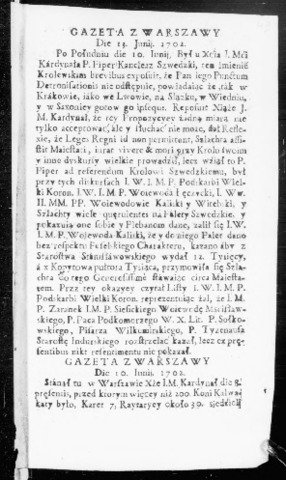 GAZETA Z WARSZAWY
Die 13. Junij. 1702.
Po Południu die 10. Junij. Był u Xcia I. Mci
Kárdynałá P. Piper Kanclerz Szwedzki, ten Imieniẽ
Krolewskim brevibus exposuit, że Pan iego Punctum
Detronisationis nie odstępuie, powiadáiąc że ták w
Krákowie, iáko we Lwowie, ná Sląsku, w Wiedniu,
y w Saxoniey gotow go ipseque. Reposuit Xiąże J.
M. Kardynał, że tey Propozycyey żadną miarą nie
tylko acceptowáć, ále y słucháć nie może, dał Refle-
xie, że Leges Regni id non permittunt, Szláchtá assi-
stit Maiestati, iurat vivere & mori przy Krolu swoim
y inne dyskursy wielkie prowádźił, lecz wźiął to P.
Piper ad referendum Krolowi Szwedzkiemu, był
przy tych diskursách I. W. I. M. P. Podskárbi Wiel-
ki Koron. I. W. I. M. P. Woiewodá Łęczycki, I. Ww.
II. MM. PP. Woiewodowie Káliski y Witebski, y
Szláchty wiele querulentes ná Pálety Szwedzkie, y
pokázuią one sobie y Plebanom dáne, żalił się I.W.
I. M. P. Woiewodá Káliski, że y do niego Palet dano
bez respektu Poselskiego Charákteru, kázano áby z
Stárostwá Stánisłáwowskiego wydał 12. Tyśięcy,
á z Kopytowá pułtorá Tyśiącá, przymowiłá się Szlá-
chtá
Maiesta-
tem. Przz tey okázyey czytał Listy I. W. I. M. P.
Podskárbi Wielki Koron. reprezentuiąc żal, że I. M.
P. Zaranek I.M.P. Sieńickiego Woiewodę Mscisłáw-
skiego, P. Pacá Podkomorzego W. X. Lit. P. Sosko-
wskiego, Pisárzá Wiłkomirskiego, P. Tyzenauzá
Stárostę Indurskiego rozstrzeláć kazał, lecz ex præ-
sentibus nikt resentimentu nie pokazał.
GAZETA Z WARSZAWY
Die 10. Junij. 1702.
Stánął tu w Warszáwie Xże I.M. Kardynał die 8.
præsentis, przed ktorym więcey niż 200. Koni Kálwá-
káty było, Karet 7, Raytáryey około 30. śiedźieli